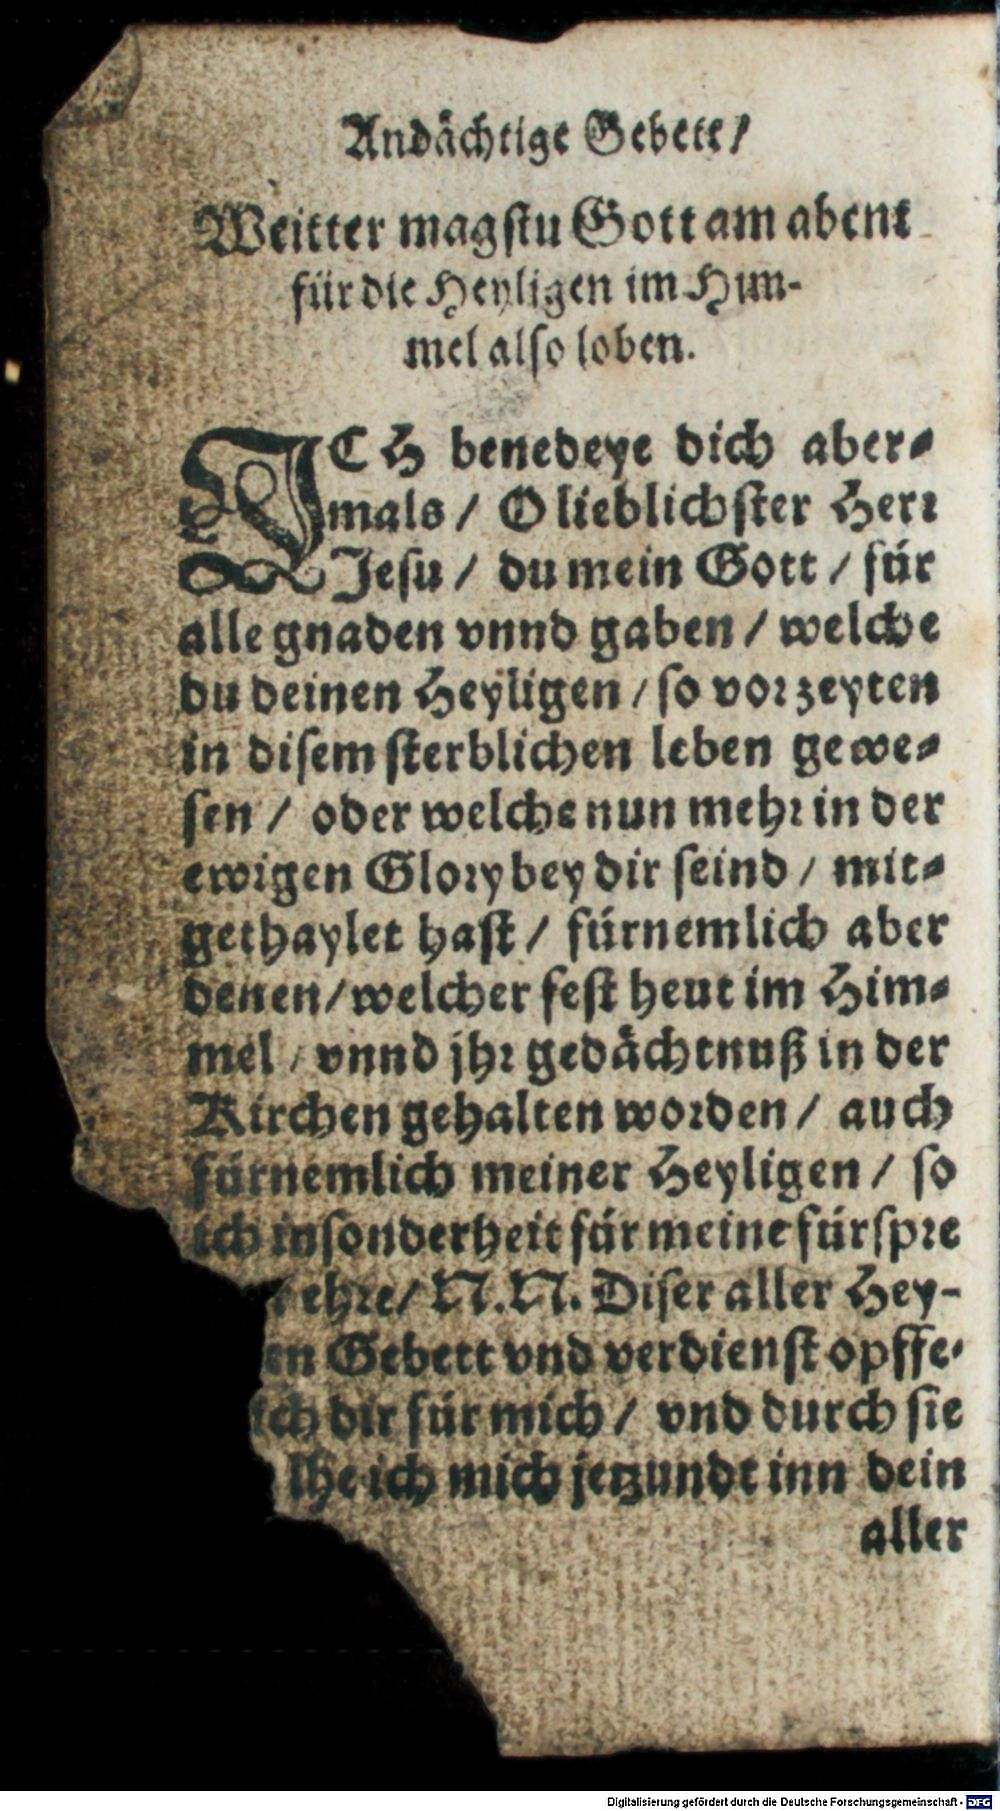 Andächtige Gebett/
Weitter magstu Gott am abent
für die Heyligen im Him-
mel also loben.
ICH benedeye dich aber-
mals / O lieblichster Herr
Jesu / du mein Gott / für
alle gnaden vnnd gaben / welche
du deinen Heyligen / so vor zeyten
in disem sterblichen leben gewe-
sen / oder welche nun mehr in der
ewigen Glory bey dir seind / mit-
gethaylet hast / fürnemlich aber
denen / welcher fest heut im Him-
mel / vnnd jhr gedächtnuß in der
Kirchen gehalten worden / auch
fürnemlich meiner Heyligen / so
ich insonderheit für meine fürspre
ehre / N. N. Diser aller Hey-
en Gebett vnd verdienst opffe-
ich dir für mich / vnd durch sie
lhe ich mich jetzundt inn dein
aller
Digitalisierung gefördert durch die Deutsche Forschungsgemeinschaft - DFG